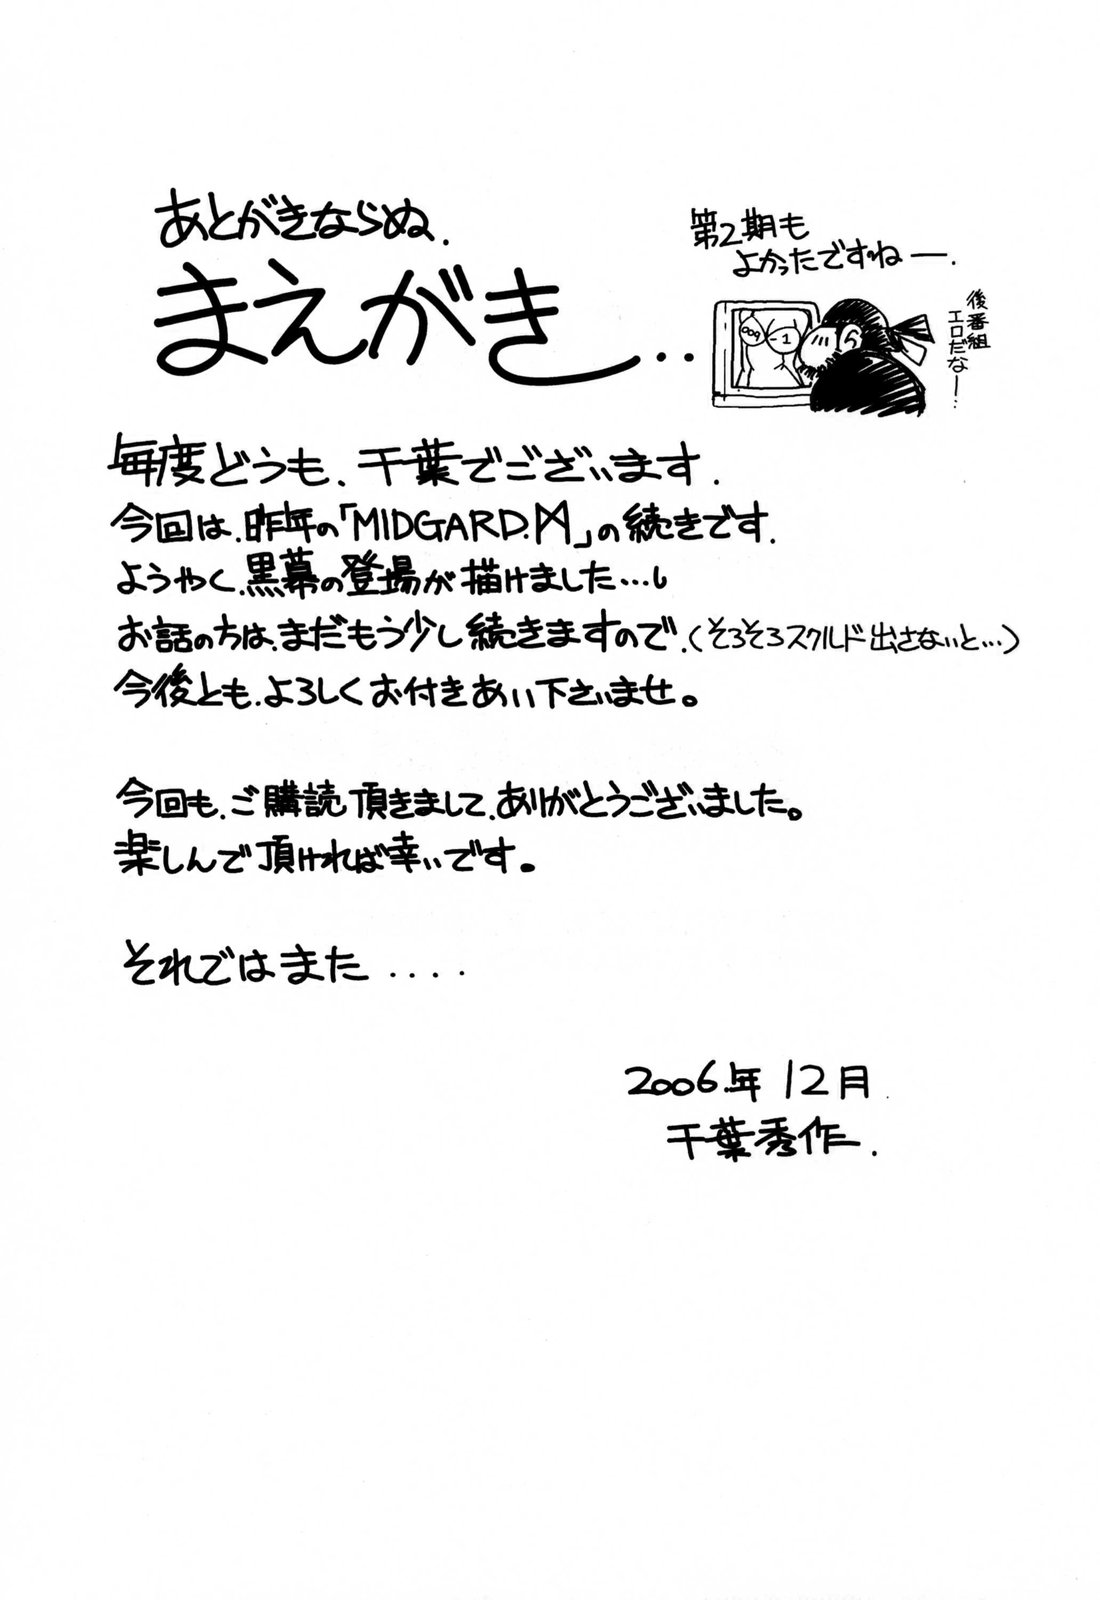 あとがきならぬ、
まえがき…
第2期も
よかったですねー.
後番組
エロだな—…
009
-1
毎度どうも、千葉でございます.
今回は、昨年の「MIDGARD.M」の続きです.
ようやく、黒幕の登場が描けました…し
お話の方は、まだもう少し続きますので、(そろそろスクルド出さないと…)
今後とも、よろしくお付きあい下さいませ。
今回も、ご購読頂きまして、ありがとうございました。
楽しんで頂ければ幸いです。
それではまた ....
2006年 12月
千葉秀作.